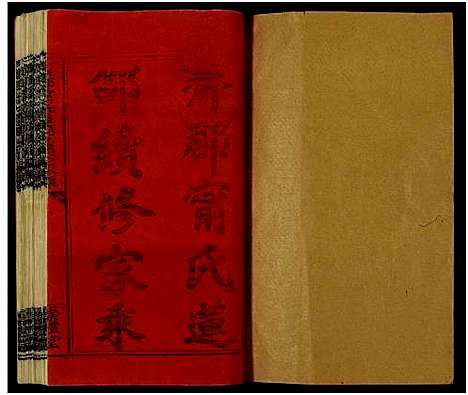 齊郡甯氏蓮
邵續修家乘